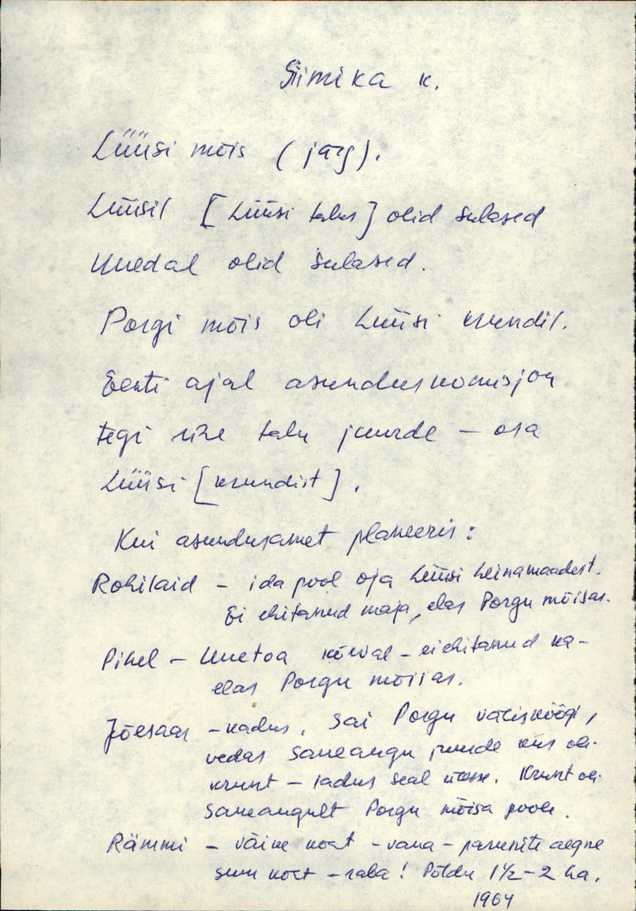 Siimika k.
Lüüsi mõis (järg).
Lüüsil [Lüüsi talus] olid sulased
Unedal olid sulased.
Porgi mõis oli Lüüsi krundil.
Eesti ajal asunduskomisjon
tegi ühe talu juurde – osa
Lüüsi [krundist].
Kui asundusamet planeeris:
Rohilaid – ida pool oja Lüüsi heinamaadest.
Ei ehitanud maja, elas Porgu mõisas.
Pihel – Unetoa kõrval – ei ehitanud ka –
elas Porgu mõisas.
Jõesaar – kadus, sai Porgu välisköögi,
vedas Saneaugu juurde kus oli
krunt – kadus seal ülesse. Krunt oli
Saneaugult Porgu mõisa poole.
Rämmi – väike koht – vana – parunite aegne
suur koht – raba! Põldu 1½–2 ha.
1964